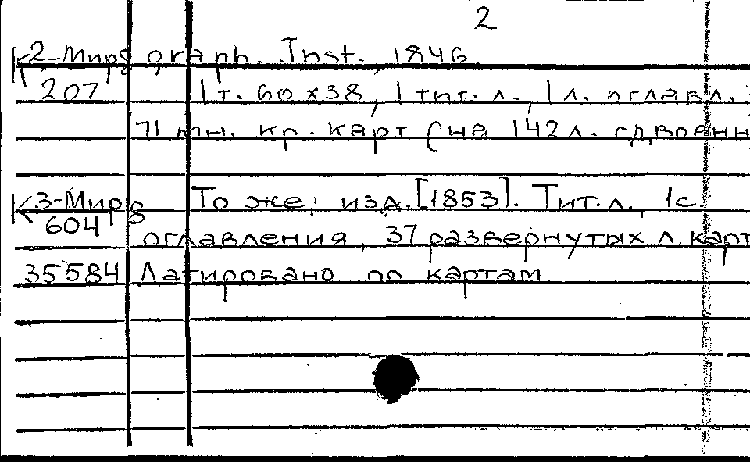 2
К2-Мирg graph. Inst., 1846
207 1 т. 60х38, 1 тит. л., 1 л. оглавл.
71 лн. кр. карт (на 142 л. сдвоенн
К3-Мирg То же; изд. [1853]. Тит. л., 1с.
604 оглавления, 37 развернутых л. карт
35584 Датировано по картам